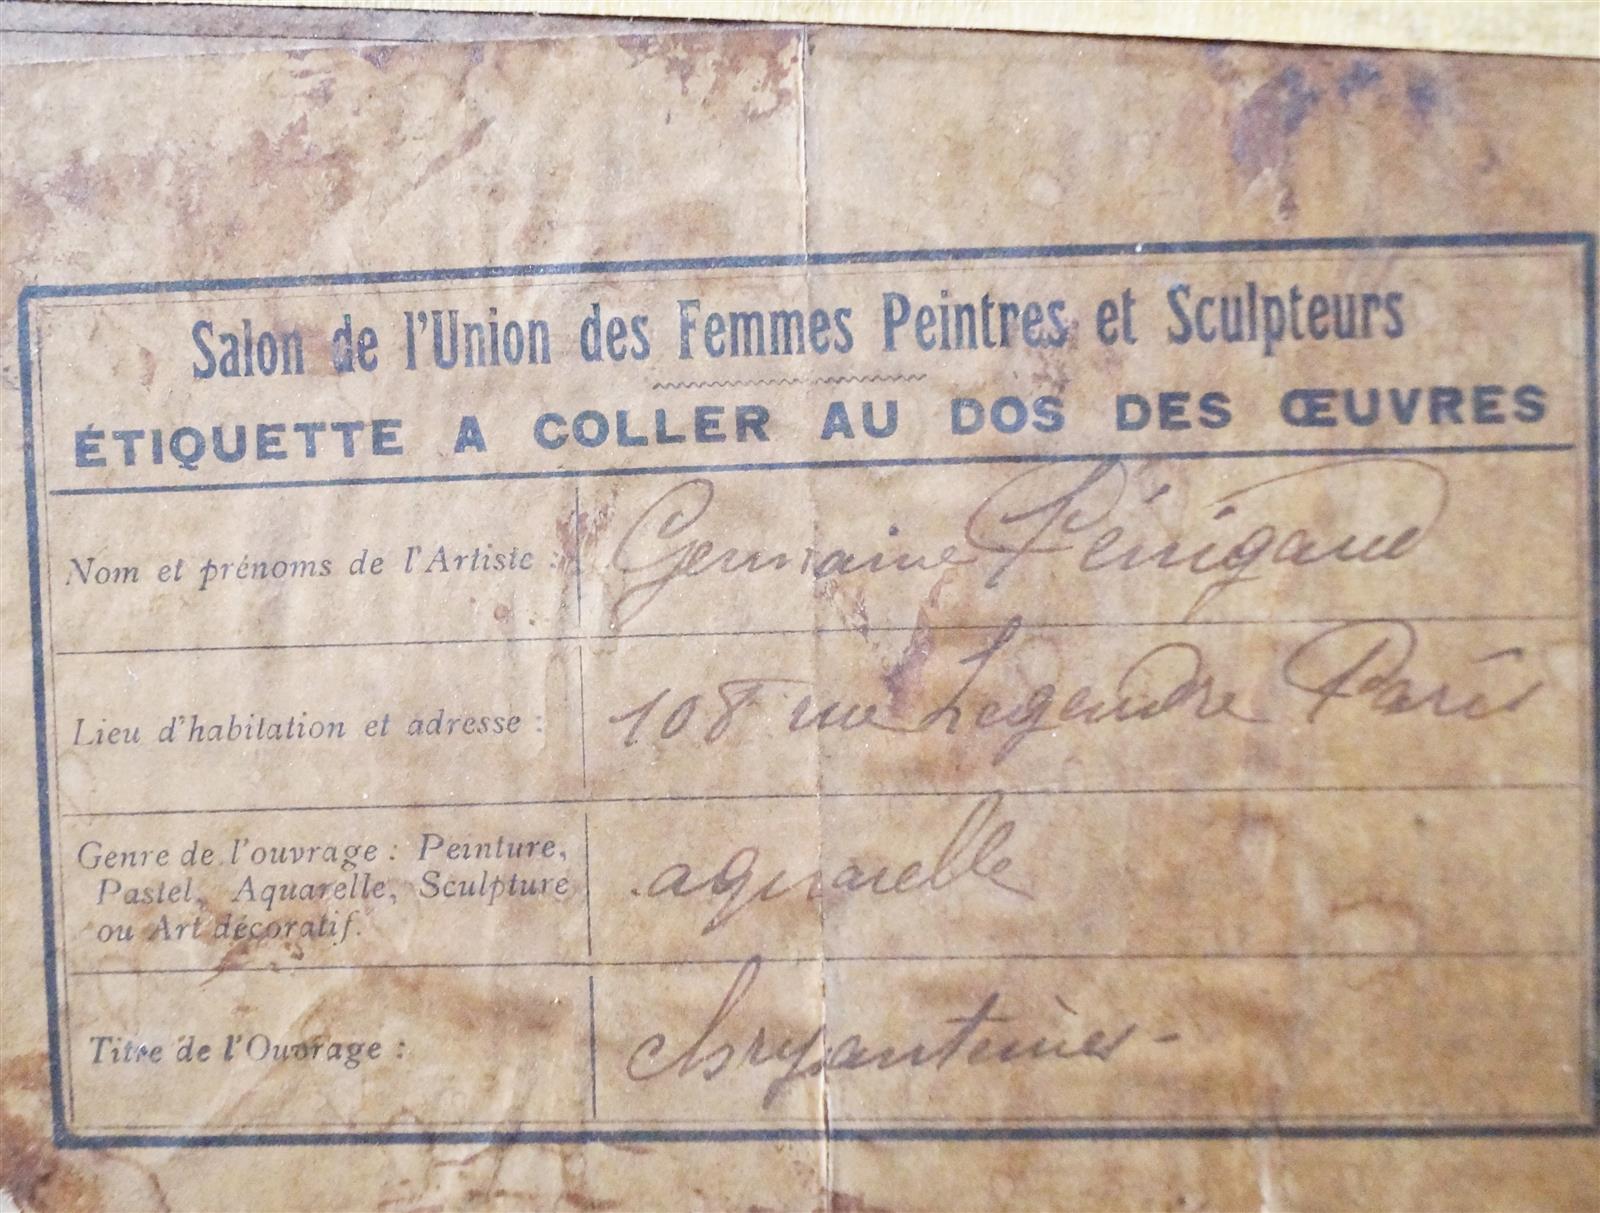 Salon de l'Union des Femmes Peintres et Sculpteurs
ÉTIQUETTE A COLLER AU DOS DES ŒUVRES
Nom et prénoms de l'Artiste : Germaine Périgaud
Lieu d'habitation et adresse : 108 rue Legendre Paris
Genre de l'ouvrage : Peinture,
Pastel, Aquarelle, Sculpture
ou Art décoratif.
aquarelle
Titre de l'Ouvrage : chrysantèmes -